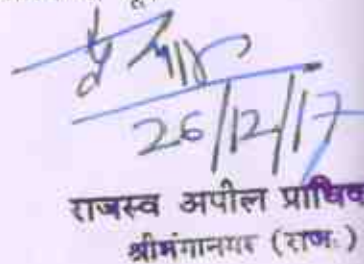 26/12/17
राजस्व अपील प्राधि
श्रीगंगानगर (राज.)